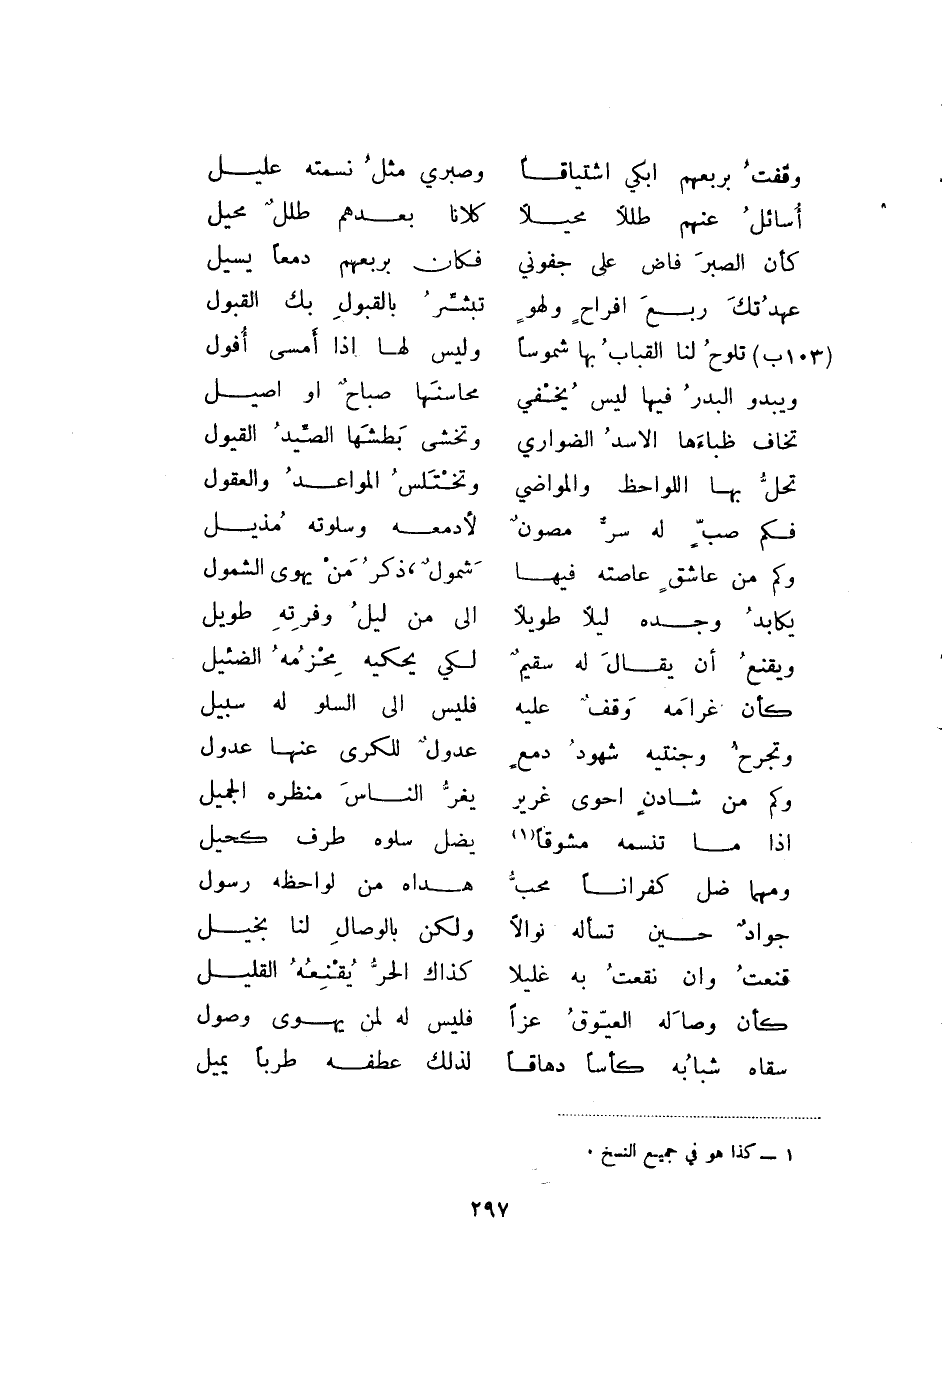 وقفتُ بربعهم ابكي اشتياقــاً وصبري مثلُ نسمته عليــل
أُسائلُ عنهم طللاً محيــلاً كلانا بعــدهم طللٌ محيل
كأن الصبرَ فاض على جفوني فكان بربعهم دمعاً يسيل
عهدْتكَ ربــعَ افراحٍ ولهوٍ تبشّرُ بالقبولِ بك القبول
(١٠٣ب) تلوحُ لنا القبابُ بها شموساً وليس لهــا اذا أَمسى أُفول
ويبدو البدرُ فيها ليس يُخْفي محاسنَها صباحٌ او اصيــل
تخاف ظباءَها الاسدُ الضواري وتخشى بَطشَها الصِّيدُ القيول
تحلُّ بهــا اللواحظ والمواضي وتخْتَلسُ المواعــدُ والعقول
فكم صبٍّ له سرٌّ مصونٌ لأدمعــه وسلوته مُذيــل
وكم من عاشقٍ عاصته فيهــا شَمولٌ، ذكرُ مَنْ يهوى الشمول
يكابدُ وجــده ليلاً طويلاً الى من ليلُ وفرتِهِ طويل
ويقنعُ أن يقــالَ له سقيمٌ لكي يحكيه مِخْزمُهُ الضئيل
كأن غرامَه وَقفٌ عليه فليس الى السلو له سبيل
وتجرحُ وجنتيه شهودُ دمعٍ عدولٌ للكرى عنهــا عدول
وكم من شــادنٍ احوى غرير يغرُّ النــاسَ منظره الجميل
اذا مــا تنسمه مشوقاً(١) يضل سلوه طرف كحيل
ومهما ضل كفرانــاً محبٌّ هــداه من لواحظه رسول
جوادٌ حــين تسأله نوالاً ولكن بالوصالِ لنا بخيــل
قنعتُ وان نقعتُ به غليلا كذاك الحرُّ يُقْنِعُهُ القليل
كأن وصاَله العيّوقُ عزاً فليس له لمن يهــوى وصول
سقاه شبابُه كأساً دهاقــاً لذلك عطفــه طرباً يميل
١ ــ كذا هو في جميع النسخ .
٢٩٧